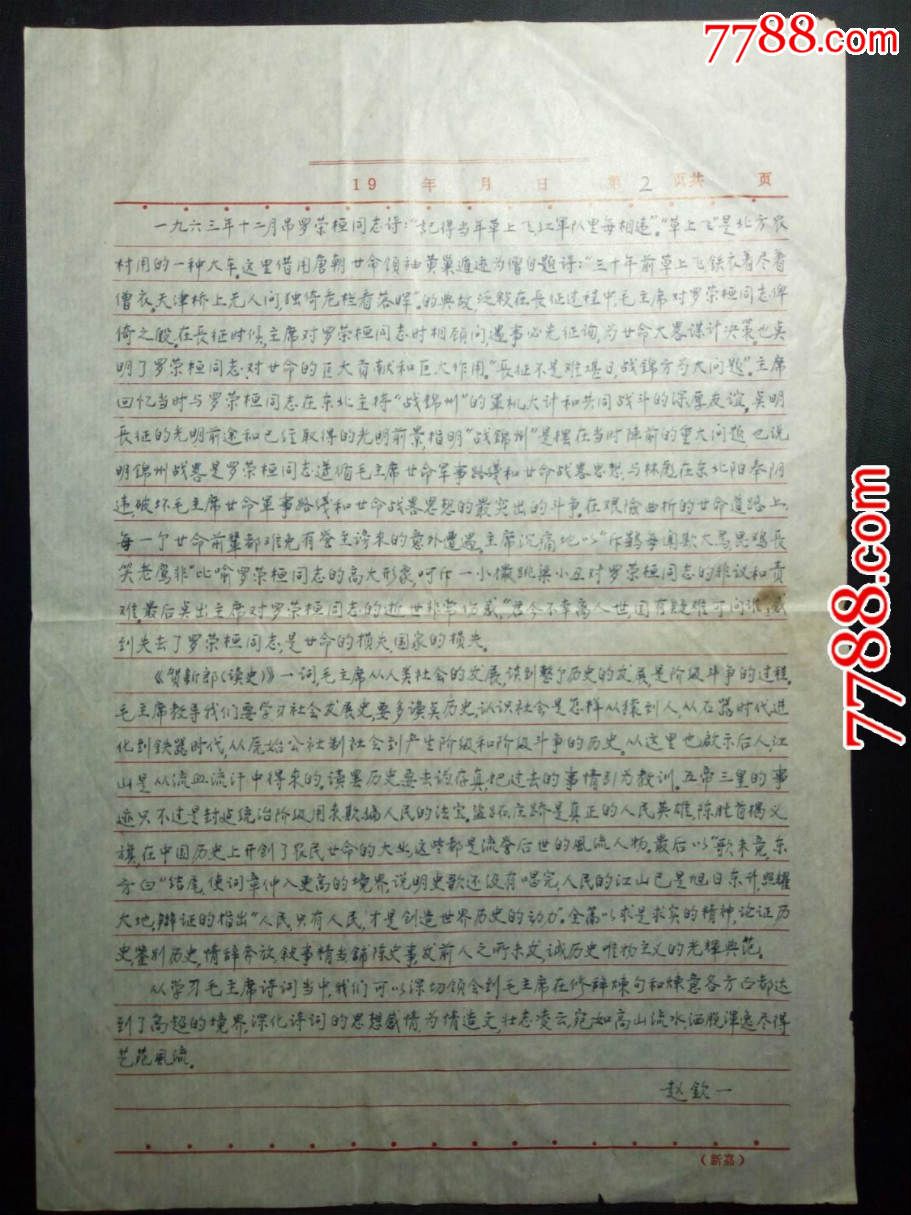 7788.com
19 年 月 日 第2页共 页
一九六三年十二月吊罗荣桓同志诗:“記得当年草上飞,红军队里每相违”。“草上飞”是北方农
村用的一种大车。这里借用唐朝廿命领袖黄巢遁迹为僧自题诗:“三十年前草上飞铁衣着尽着
僧衣。天津桥上无人问,独倚危栏看落晖”。的典故,返叙在長征过程中毛主席对罗荣桓同志俾
倚之殷。在長征时候,主席对罗荣桓同志时相顾问,遇事必先征询,为廿命大畧谋计决策。也奌
明了罗荣桓同志,对廿命的巨大贡献和巨大作用。“長征不是难堪日,战锦方为大问题”。主席
回忆当时与罗荣桓同志在东北主持“战锦州”的軍机大计和共同战斗的深厚友谊,奌明
長征的光明前途和已经取得的光明前景,指明“战锦州”是摆在当时陣前的重大问题 也说
明锦州战畧是罗荣桓同志遵循毛主席廿命軍事路綫和廿命战畧思想,与林彪在东北阳奉阴
违,破坏毛主席廿命軍事路綫和廿命战畧思想的最突出的斗争。在艰险曲折的廿命道路上,
每一个廿命前輩都难免有营主谤来的意外遭遇。主席沉痛地以“斥鷃每闻欺大鸟,思鸡長
笑老鹰非”比喻罗荣桓同志的高大形象,呵斥一小撮跳梁小丑对罗荣桓同志的非议和责
难。最后奌出主席对罗荣桓同志的逝世非常伤感,“君今不幸离人世,国有疑难可问谁”,感
到失去了罗荣桓同志,是廿命的损失国家的损失。
《贺新郎(读史)》一词,毛主席从人类社会的发展,谈到整个历史的发展是阶级斗争的过程。
毛主席教导我们要学习社会发展史,要多读奌历史,认识社会是怎样从猿到人,从石器时代进
化到鉄器时代,从原始公社制社会到产生阶级和阶级斗争的历史。从这里也啟示后人江
山是从流血流汗中得来的。读罢历史要去诊在真,把过去的事情引为教训。五帝三皇的事
迹只不过是封建统治阶级用来欺骗人民的法宝。盗跖庄蹻是真正的人民英雄。陈胜首揭义
旗,在中国历史上开创了农民廿命的大业。这些都是流誉后世的風流人物。最后以“歌未竟,东
方白”结尾,使词章伸入更高的境界,说明史歌还没有唱完,人民的江山已是旭日东升,照耀
大地,辯证的指出“人民,只有人民,才是创造世界历史的动力”。全篇以求是求实的精神,论证历
史,鉴别历史,情辞奔放,敘事情专铺陈史事,发前人之所未发,诚历史唯物主义的光輝典范。
从学习毛主席诗词当中,我们可以深切领会到毛主席在修辞煉句和煉意各方面都达
到了高超的境界,深化诗词的思想感情为情造文,壮志凌云,宛如高山流水洒脱渾逸,尽得
艺苑風流。
赵钦一
(新嘉)
7788.com